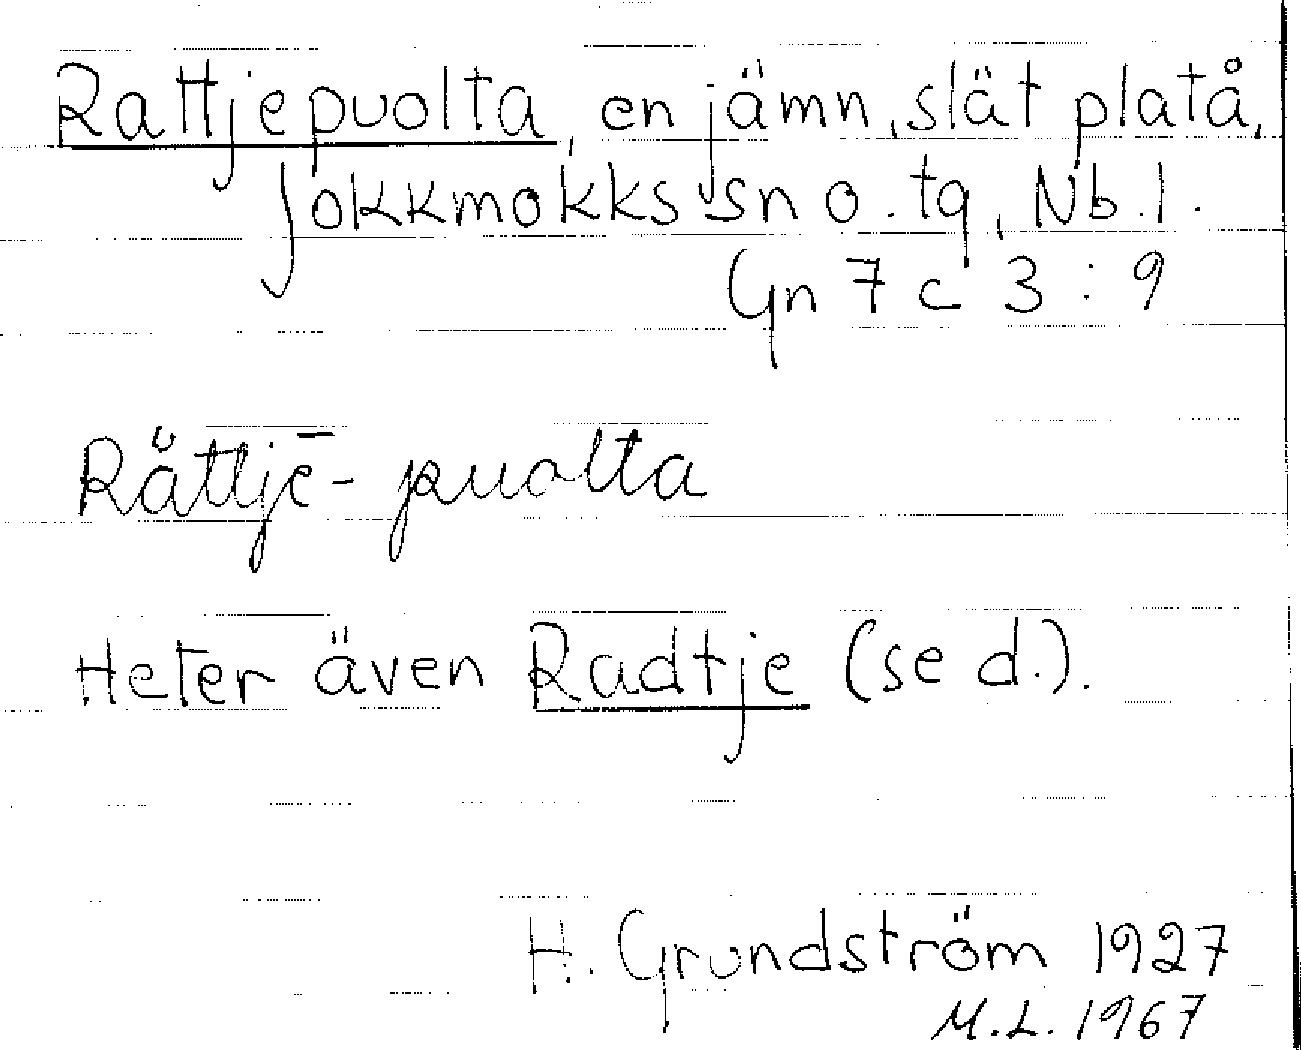 Rattjepuolta, en jämn, slät platå,
Jokkmokks sn o. tg, Nb.l.
Gn 7 c 3 : 9
Rắttjē- puolta
Heter även Radtje (se d.).
H. Grundström 1927
M.L. 1967